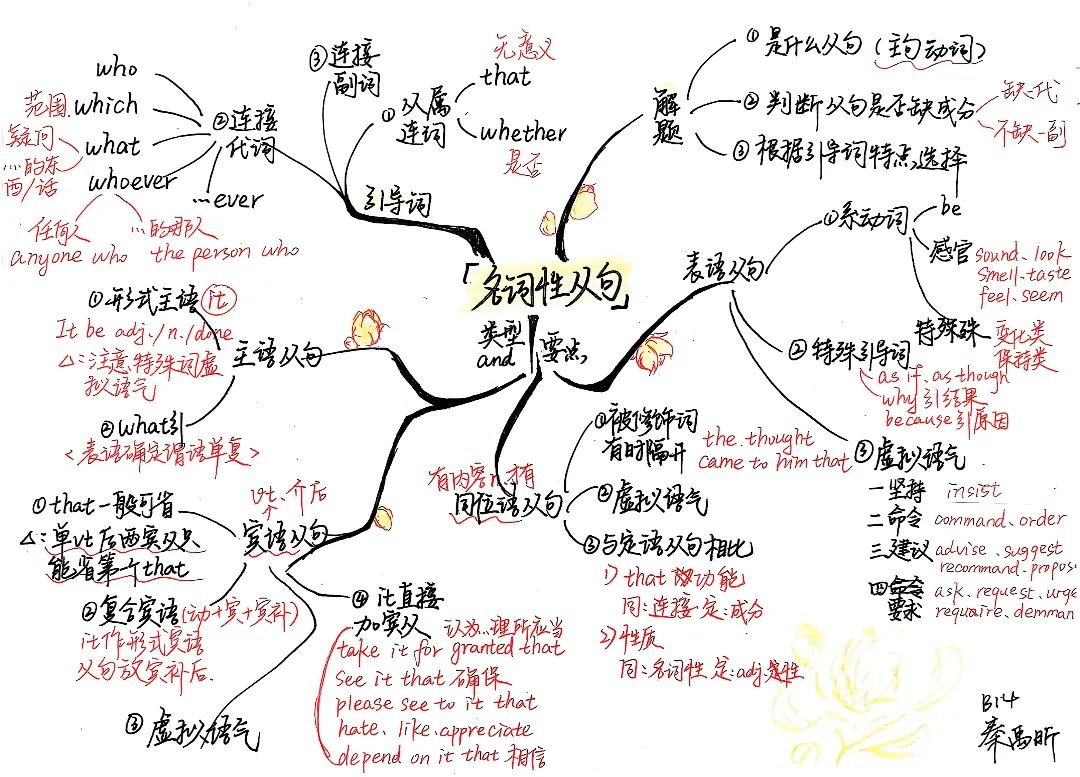 「名词性从句」
类型
and
要点
引导词
①从属
连词
that
无意义
whether
是否
②连接
代词
who
which
范围
what
疑问
…的东
西/话
whoever
任何人
anyone who
…的那人
the person who
…ever
③连接
副词
解
题
①是什么从句(主句动词)
②判断从句是否缺成分
缺-代
不缺-副
③根据引导词特点选择
表语从句
①系动词
be
感官
sound、look
smell、taste
feel、seem
特殊
变化类
保持类
②特殊引导词
as if、as though
why引结果
because引原因
③虚拟语气
一坚持 insist
二命令 command、order
三建议 advise、suggest
recommand、propos
四命令
要求
ask、request、urge
requaire、demman
主语从句
①形式主语it
It be adj./n./done
△:注意特殊词虚
拟语气
②what引
<表语确定谓语单复>
宾语从句
vt、介后
①that一般可省
△:单vt后两宾从只
能省第一个that
②复合宾语(动+宾+宾补)
it作形式宾语
从句放宾补后.
③虚拟语气
④it直接
加宾从
认为…理所应当
take it for granted that
see it that 确保
please see to it that
hate、like、appreciate
depend on it that 相信
同位语从句
有内容n.才有
①被修饰词
有时隔开
the thought
came to him that
②虚拟语气
③与定语从句相比
1) that 功能
同:连接 定:成分
2) 性质
同:名词性 定:adj.性
B14
秦禹昕